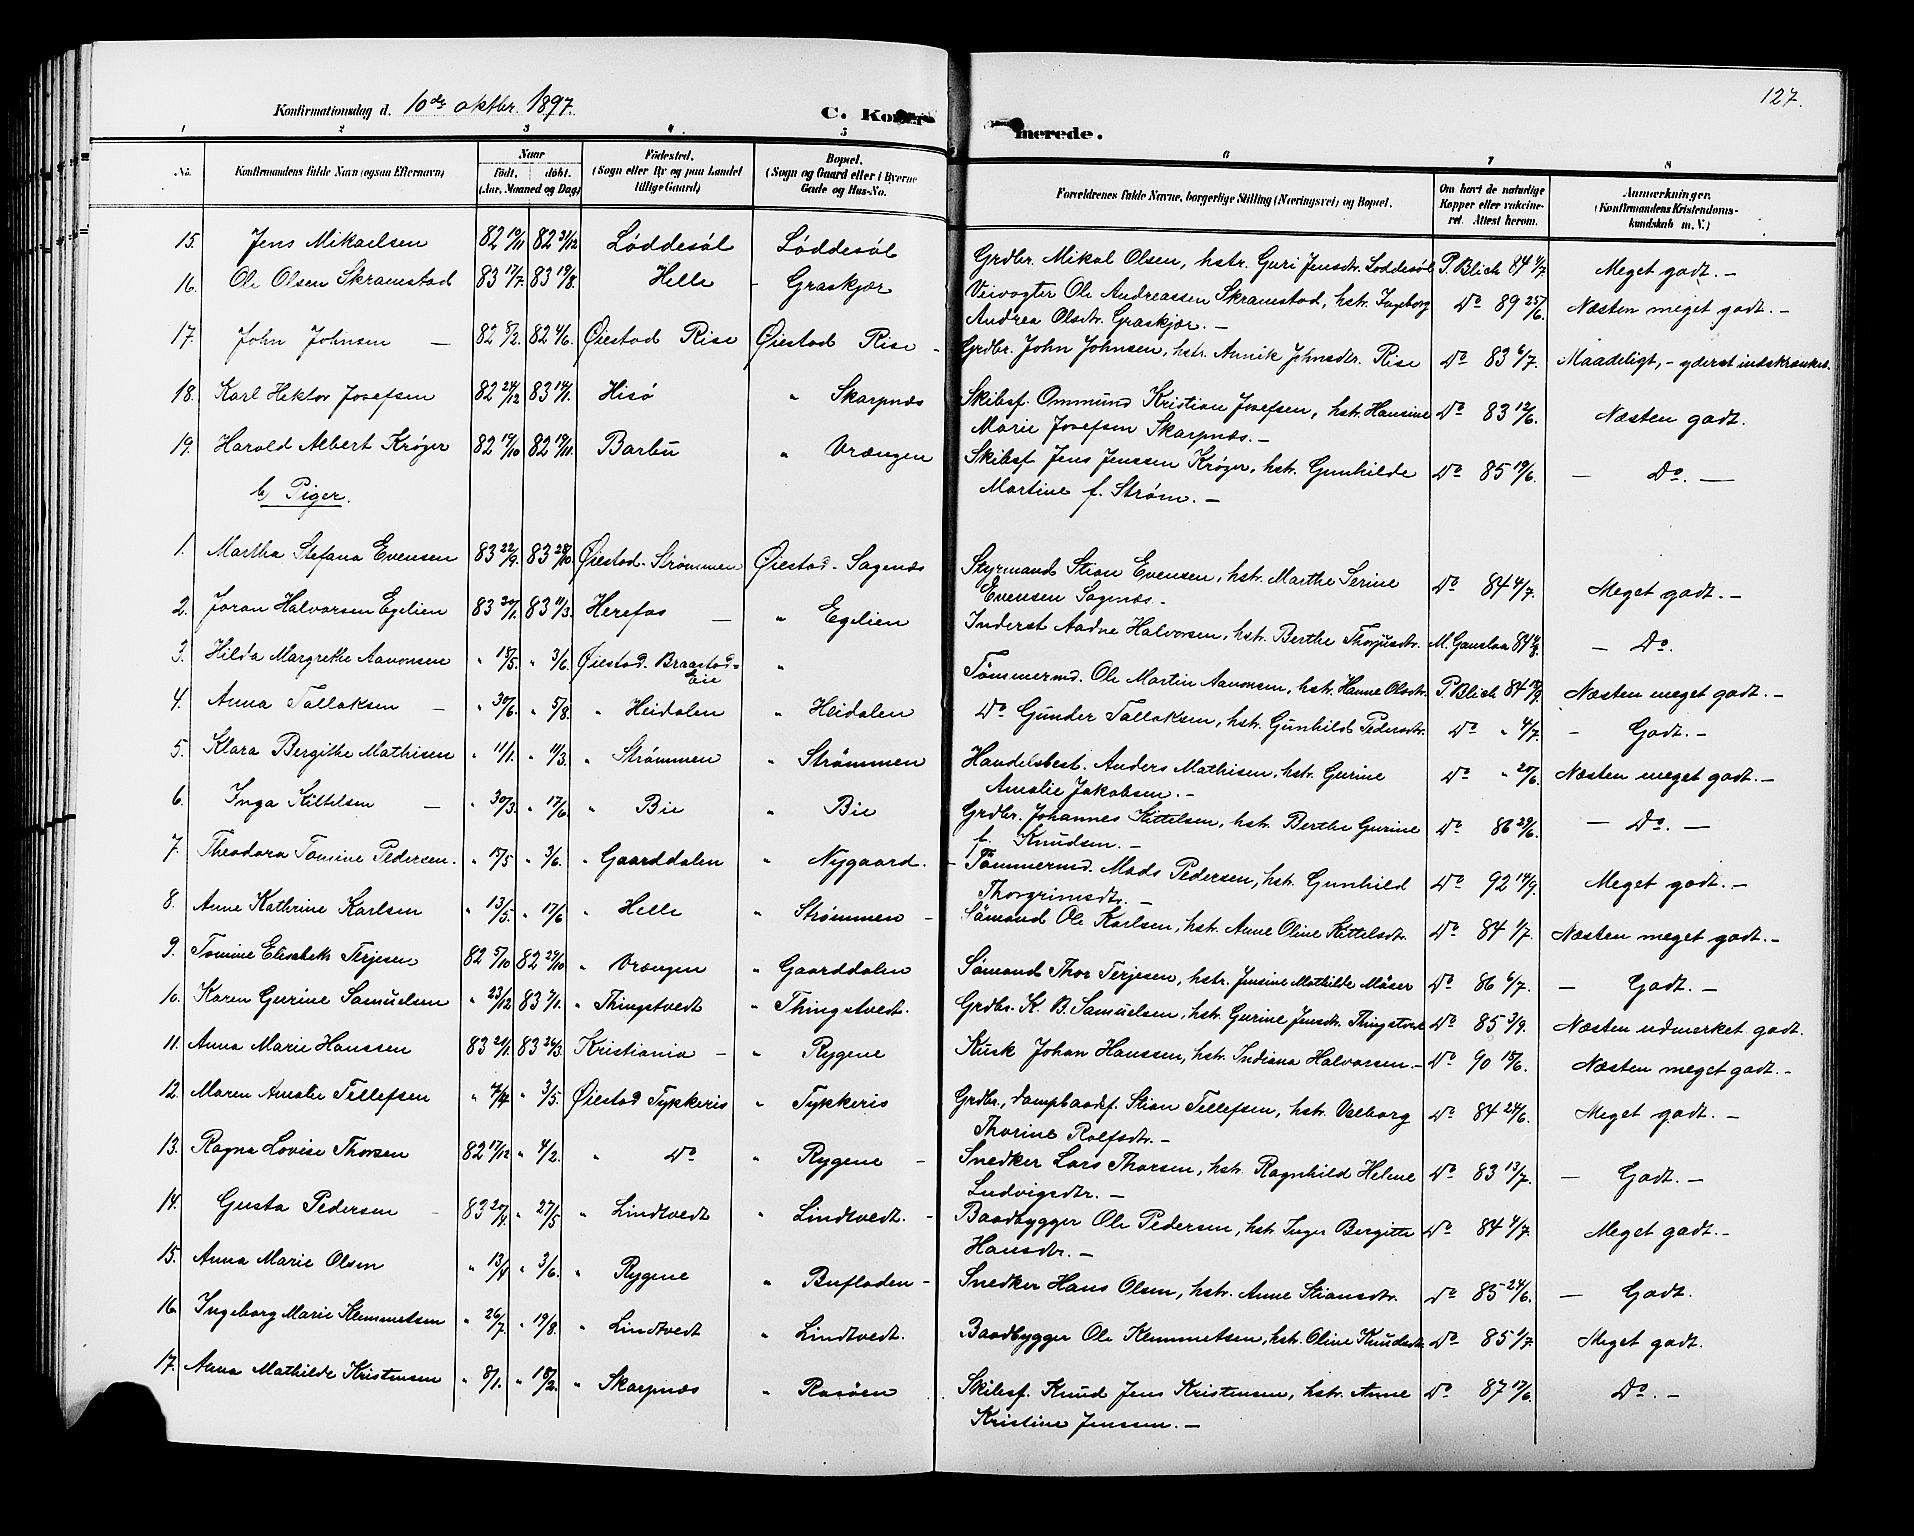 127.
Konfirmationsdag d. 10de oktbr. 1897.
C. Konfir merede.
1 2 3 4 5 6 7 8
No. Konfirmandens fulde Navn (ogsaa Efternavn) Naar født, døbt. (Aar, Maaned og Dag) Fødested. (Sogn eller By og paa Landet tillige Gaard) Bopæl. (Sogn og Gaard eller i Byerne Gade og Hus-No. Forældrenes fulde Navne, borgerlige Stilling (Næringsvei) og Bopæl. Om havt de naturlige Kopper eller vakcineret. Attest herom. Anmærkninger. (Konfirmandens Kristendomskundskab m. V.)
15. Jens Mikaelsen 82 19/11 82 31/12 Løddesøl Løddesøl Grdbr. Mikal Olsen, hstr. Guri Jensdtr. Løddesøl P. Blich 84 4/7 Meget godt. –
16. Ole Olsen Skramestad 83 17/7 83 19/8. Helle – Graskjær Veivogter Ole Andreassen Skramestad, hstr. Ingeborg Do 89 25/6. Næsten meget godt. –
Andrea Olsdtr. Graskjær. –
17. John Johnsen – 82 8/2. 82 4/6. Øiestad Rise Øiestad Rise – Grdbr. John Johnsen, hstr. Annik Johnsdtr. Rise Do 83 6/7. Maadeligt, – yderst indskrænket.
18. Karl Hektor Josefsen 82 24/12 83 14/1. Hisø " Skarpnæs Skibsf. Ommund Kristian Josefsen, hstr. Hansine Do 83 12/6. Næsten godt.
Marie Josefsen Skarpnæs. –
19. Harald Albert Krøger 82 17/10 82 19/11. Barbu " Vrængen Skibsf. Jens Jenssen Krøger, hstr. Gunhilde Do 85 19/6. – Do. –
Martine f. Strøm. –
b) Piger.
1. Martha Stefana Evensen 83 22/9. 83 28/10. Øiestad. Strømmen Øiestad. Sagenæs Styrmand Stian Evensen, hstr. Marthe Serine Do 84 4/7. Meget godt. –
Evensen Sagenæs. –
2. Joran Halvorsen Egelien 83 30/1. 83 11/3. Herefos – " Egelien Inderst Aadne Halvorsen, hstr. Berthe Thorjusdtr. M. Gauslaa – Do.
3. Hilda Margrethe Aanonsen " 18/5. " 3/6. Øiestad. Braastad- "
Eie
Tømmermd. Ole Martin Aanonsen, hstr. Hanne Olsdtr. P. Blich Næsten meget godt. –
4. Anna Tallaksen – " 30/6. " 5/8. " Heidalen " Heidalen Do Gunder Tallaksen, hstr. Gunhild Pedersdtr. Do " 4/7. – Godt. –
5. Klara Bergithe Mathisen " 11/1. " 11/3. " Strømmen " Strømmen Handelsbest. Anders Mathisen, hstr. Gurine Do " 20/6. Næsten meget godt. –
Amalie Jakobsen. –
6. Inga Kittelsen – " 30/3. " 17/6. " Bie " Bie Grdbr. Johannes Kittelsen, hstr. Berthe Gurine Do 86 29/6. – Do. –
f. Knudsen. –
7. Theodora Tomine Pedersen. " 15/5 " 3/6. " Gaarddalen " Nygaard. – Tømmermd. Mads Pedersen, hstr. Gunhild Do 92 14/9. Meget godt. –
Thorgrimsdtr. –
8. Anne Kathrine Karlsen " 13/5. " 17/6 " Helle " Strømmen – Sømand Ole Karlsen, hstr. Anne Oline Kittelsdtr. Do 84 1/7. Næsten meget godt. –
9. Tomine Elisabeth Terjesen 82 5/10 82 29/10 " Vrængen " Gaarddalen Sømand Thor Terjesen, hstr. Jensine Mathilde Møser Do 86 6/7. – Godt. –
10. Karen Gurine Samuelsen " 23/12 83 7/1. " Thingstvedt " Thingstvedt. Grdbr. K. B. Samuelsen, hstr. Gurine Jensdtr. Thingstvedt Do 85 3/9. Næsten udmerket godt.
11. Anna Marie Hanssen 83 21/1. 83 26/3. Kristiania – " Rygene Kusk Johan Hanssen, hstr. Indiana Halvorsen. – Do 90 15/6. Næsten meget godt. –
12. Maren Amalie Tellefsen " 7/4 " 3/5. Øiestad Tykkeris " Tykkeris Grdbr., dampbaadsf. Stian Tellefsen, hstr. Valborg Do 84 24/6. Meget godt. –
Thorine Rolfsdtr. –
13. Ragna Lovise Thorsen 82 17/12 " 4/2. " Do " Rygene – Snedker Lars Thorsen, hstr. Ragnhild Helene Do 83 13/7. – Godt. –
Ludvigsdtr. –
14. Gusta Pedersen – 83 20/4. " 27/5 " Lindtvedt " Lindtvedt. – Baadbygger Ole Pedersen, hstr. Inger Bergitte Do 84 4/7. Meget godt. –
Hansdtr. –
15. Anna Marie Olsen " 13/4 " 3/6. " Rygene " Bufladen – Snedker Hans Olsen, hstr. Anne Stiansdtr. Do 85 24/6. – Godt.
16. Ingeborg Marie Klemmetsen " 26/7. " 19/8. " Lindtvedt " Lindtvedt. Baadbygger Ole Klemmetsen, hstr. Oline Knudsdtr. Do 85 1/7. Meget godt.
17. Anna Mathilde Kristensen " 8/1. " 18/2. " Skarpnæs " Rasøen . Skibsf. Knud Jens Kristensen, hstr. Anne Do 87 17/6. Do. –
Kristine Jenssen. –